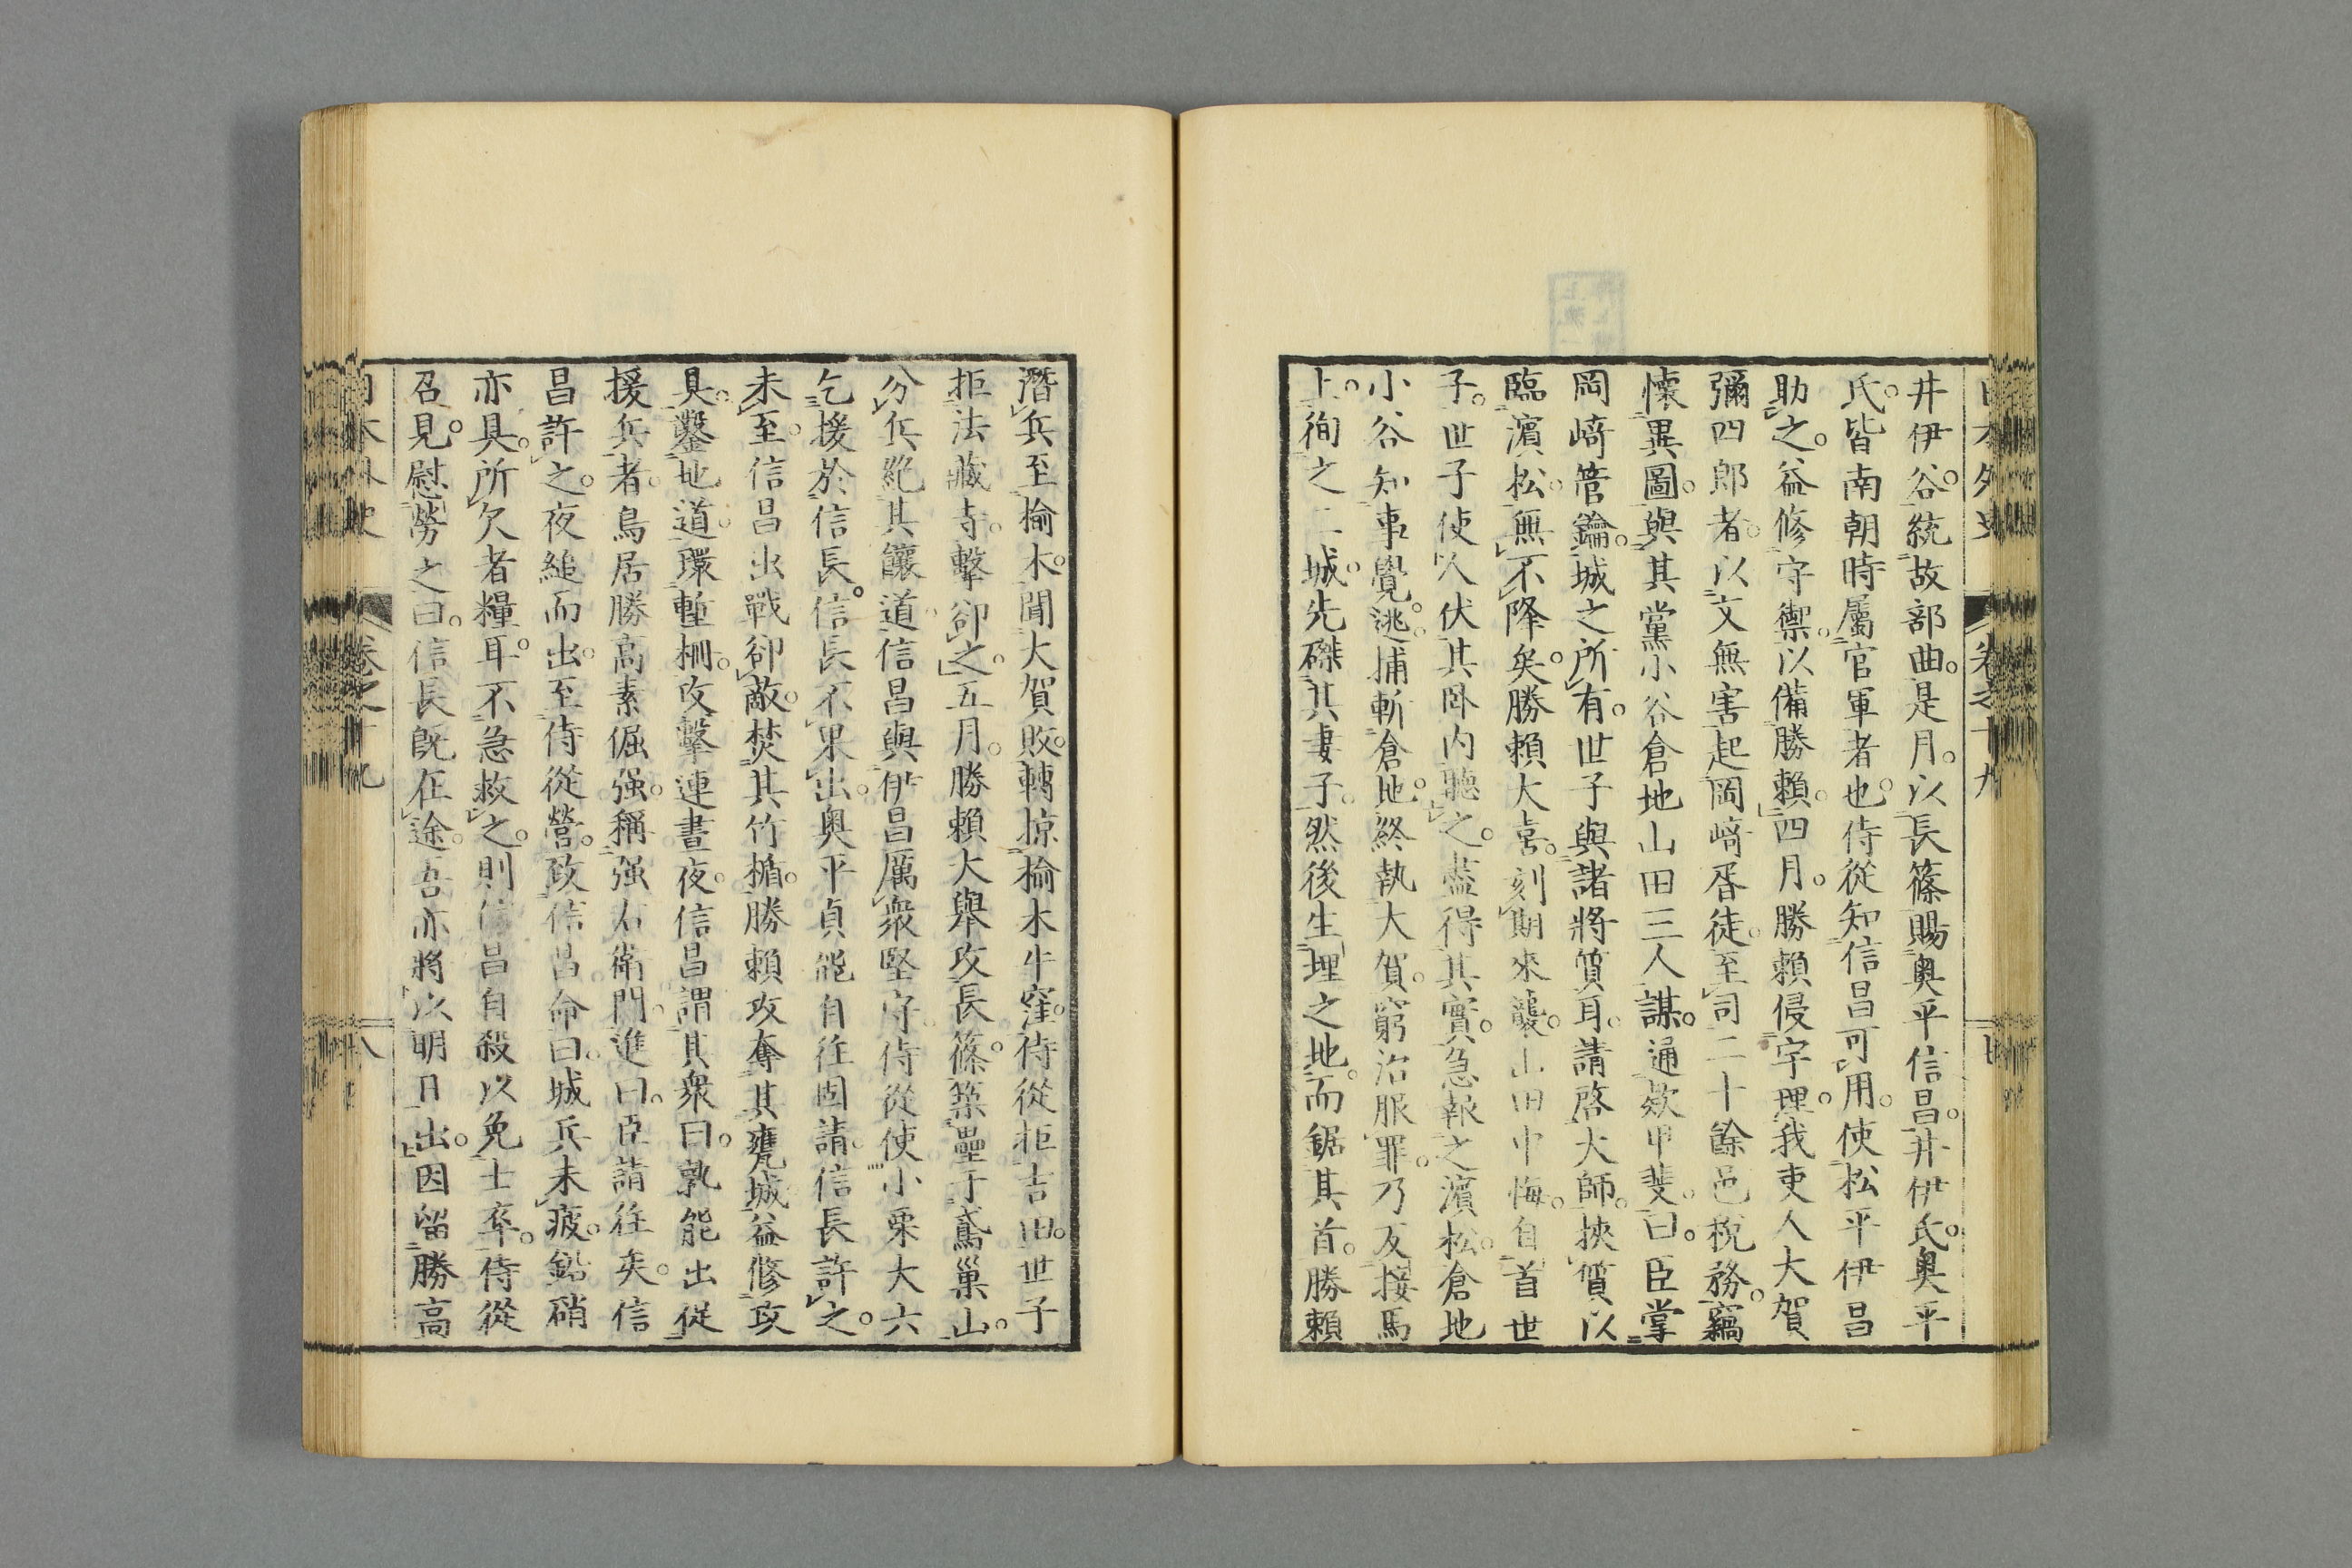 日本外史 卷之十九
井伊谷。統故部曲。是月。以長篠賜奥平信昌。井伊氏。奥平
氏。皆南朝時屬官軍者也。侍從知信昌可用。使松平伊昌
助之。益修守禦。以備勝賴。四月。勝賴侵宇理。我吏人大賀
彌四郎者。以文無害起岡﨑胥徒。至司二十餘邑稅務。竊
懷異圖。與其黨小谷倉地山田三人謀。通欵甲斐。曰。臣掌
岡﨑管鑰。城之所有。世子與諸將質耳。請啓大師。挾質以
臨濵松。無不降矣。勝賴大喜。刻期來襲。山田中悔。自首世
子。世子使人伏其卧内聽之。盡得其實。急報之濵松。倉地
小谷知事覺。逃。捕斬倉地。終執大賀。窮治服罪。乃反接馬
上。徇之二城。先磔其妻子。然後生埋之地。而鋸其首。勝賴
潛兵至楡木。聞大賀敗。轉掠楡木牛窪。侍從拒吉田。世子
拒法藏寺。擊卻之。五月。勝賴大舉攻長篠。築壘于鳶巢山。
分兵絶其饟道。信昌與伊昌厲衆堅守。侍從使小栗大六
乞援於信長。信長不果出。奥平貞能自往固請。信長許之。
未至。信昌出戰卻敵。焚其竹楯。勝賴攻奪其甕城。益修攻
具。鑿地道。環塹柵。攻擊連晝夜。信昌謂其衆曰。孰能出促
援兵者。鳥居勝高素倔强。稱强右衛門。進曰。臣請往矣。信
昌許之。夜縋而出。至侍從營。致信昌命曰。城兵未疲。鉛硝
亦具。所欠者糧耳。不急救之。則信昌自殺以免士卒。侍從
召見。慰勞之曰。信長旣在途。吾亦將以明日出。因留勝高
日本外史 卷之十九 八